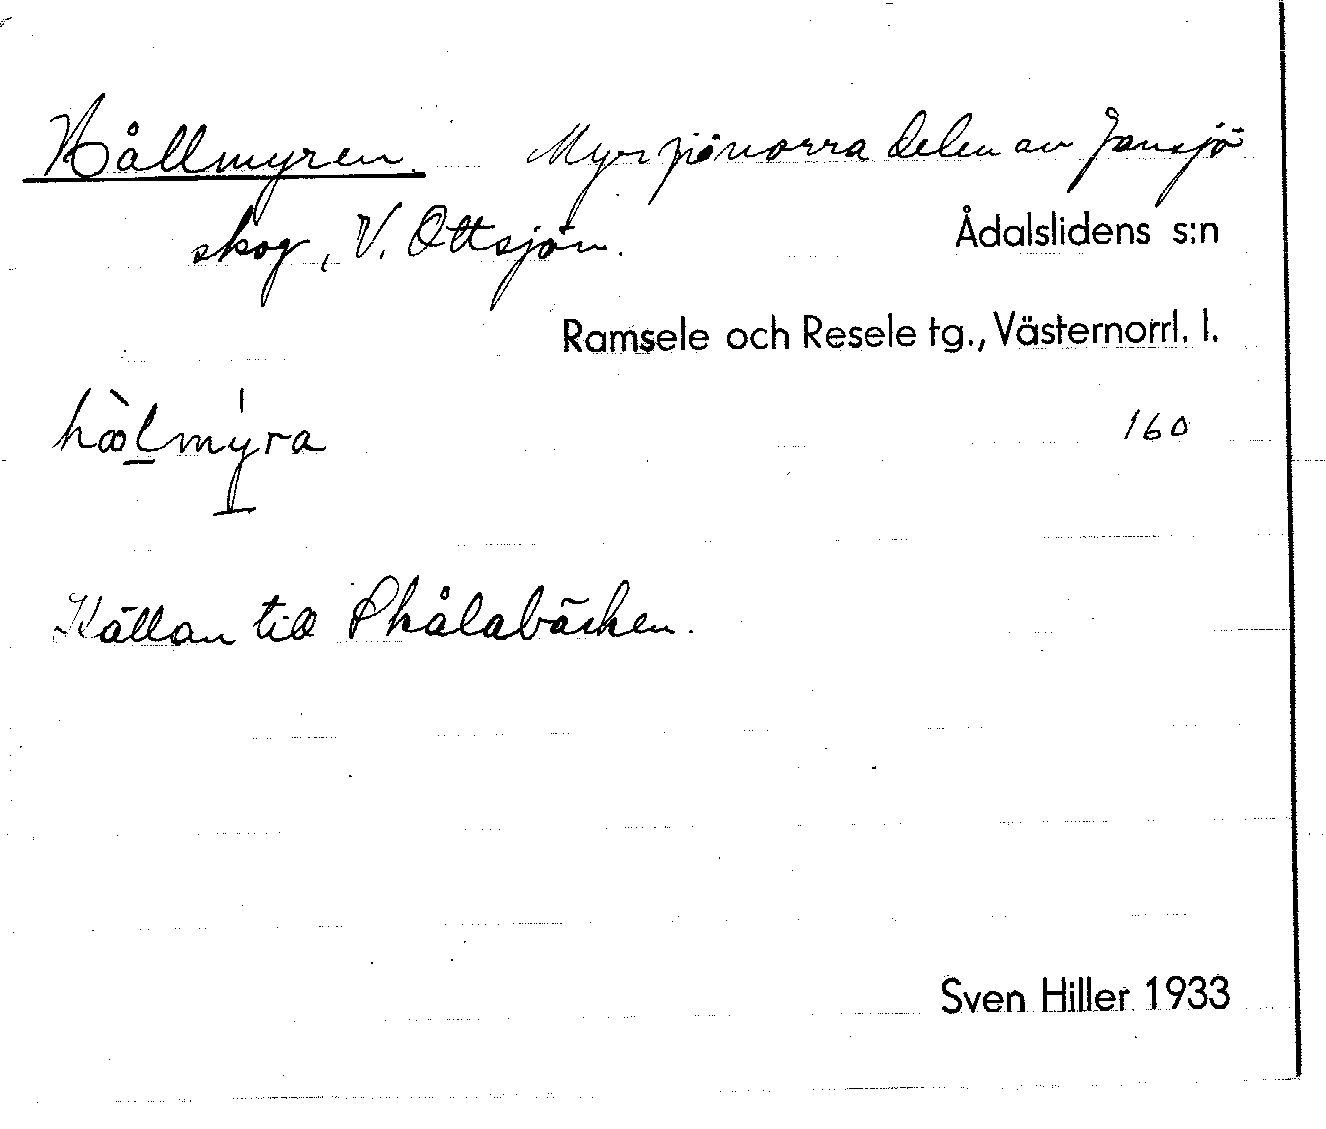 Hållmyren. Myr på norra delen av Jansjö
skog, V. Ottsjön.
Ådalslidens s:n
Ramsele och Resele tg., Västernorrl. l.
160
Källan till Skålabäcken.
Sven Hiller 1933